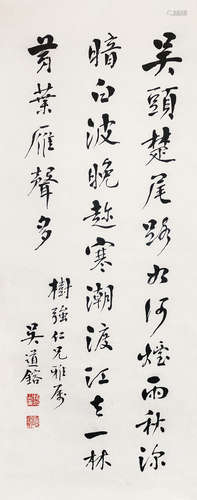 吴頭楚尾路如何煙雨秋深
暗白波晚趁寒潮渡江去一林
黄葉雁聲多
樹強仁兄雅属
吴道鎔